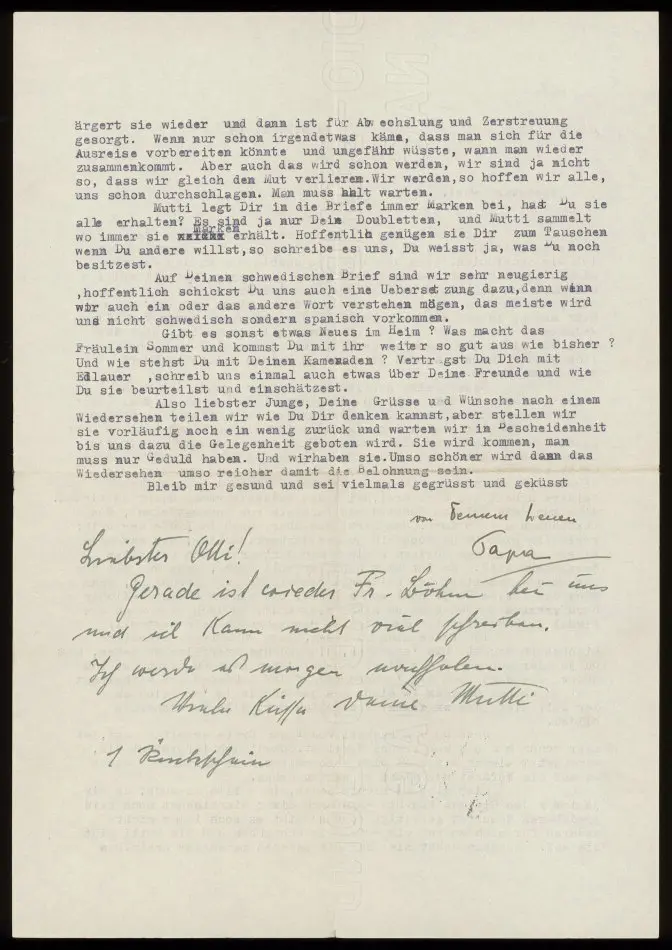 ärgert sie wieder und dann ist für Abwechslung und Zerstreuung
gesorgt. Wenn nur schon irgendetwas käme, dass man sich für die
Ausreise vorbereiten könnte und ungefähr wüsste, wann man wieder
zusammenkommt. Aber auch das wird schon werden, wir sind ja nicht
so, dass wir gleich den Mut verlieren.Wir werden,so hoffen wir alle,
uns schon durchschlagen. Man muss halt warten.
Mutti legt Dir in die Briefe immer Marken bei, hast Du sie
alle erhalten? Es sind ja nur Dein Doubletten, und Mutti sammelt
wo immer sie Marken erhält. Hoffentlich genügen sie Dir zum Tauschen
wenn Du andere willst,so schreibe es uns, Du weisst ja, was Du noch
besitzest.
Auf Deinen schwedischen Brief sind wir sehr neugierig
,hoffentlich schickst Du uns auch eine Uebersetzung dazu,denn wenn
wir auch ein oder das andere Wort verstehen mögen, das meiste wird
uns nicht schwedisch sondern spanisch vorkommen.
Gibt es sonst etwas Neues im Heim ? Was macht das
Fräulein Sommer und kommst Du mit ihr weiter so gut aus wie bisher ?
Und wie stehst Du mit Deinen Kameraden ? Vertr gst Du Dich mit
Edlauer ,schreib uns einmal auch etwas über Deine Freunde und wie
Du sie beurteilst und einschätzest.
Also liebster Junge, Deine Grüsse u d Wünsche nach einem
Wiedersehen teilen wir wie Du Dir denken kannst,aber stellen wir
sie vorläufig noch ein wenig zurück und warten wir in Bescheidenheit
bis uns dazu die Gelegenheit geboten wird. Sie wird kommen, man
muss nur Geduld haben. Und wirhaben sie.Umso schöner wird dann das
Wiedersehen umso reicher damit die Belohnung sein.
Bleib mir gesund und sei vielmals gegrüsst und geküsst
von Deinem treuen
Papa
Liebster Olli!
Gerade ist wieder Fr. Böhm bei uns
und ich kann nicht viel schreiben.
Ich werde es morgen nachholen.
Viele Küsse Deine Mutti
1 Rückschein